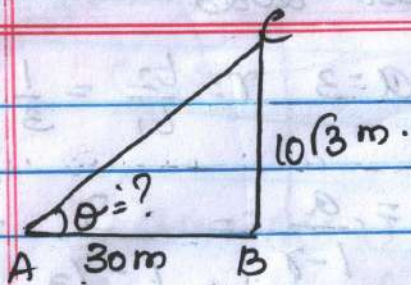 C
10√3 m.
θ=?
A 30m B